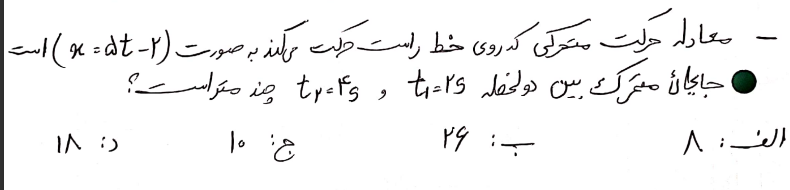 - معادله حرکت متحرکی که روی خط راست حرکت می‌کند به صورت (x = ۵t - ۲) است
جابجائی متحرک بین دو لحظه t۱=۲s و t۲=۴s چند متر است؟
الف: ۸ ب: ۲۶ ج: ۱۰ د: ۱۸